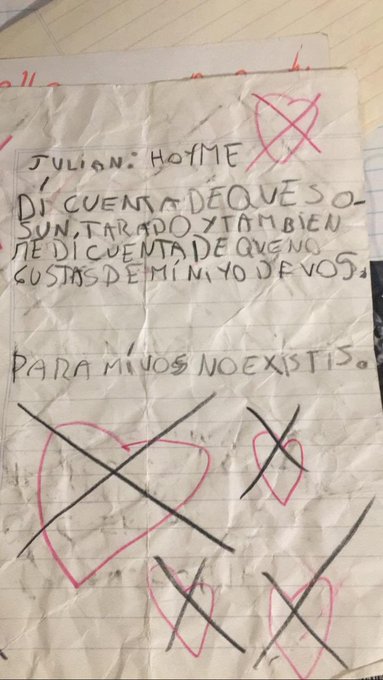 JULIAN: HOY ME
DÍ CUENTA DE QUE SO-
S UN, TARADO Y TAMBIEN
ME DI CUENTA DE QUE NO
GUSTAS DE MÍ NI YO DE VOS.
PARA MÍ VOS NO EXISTIS.